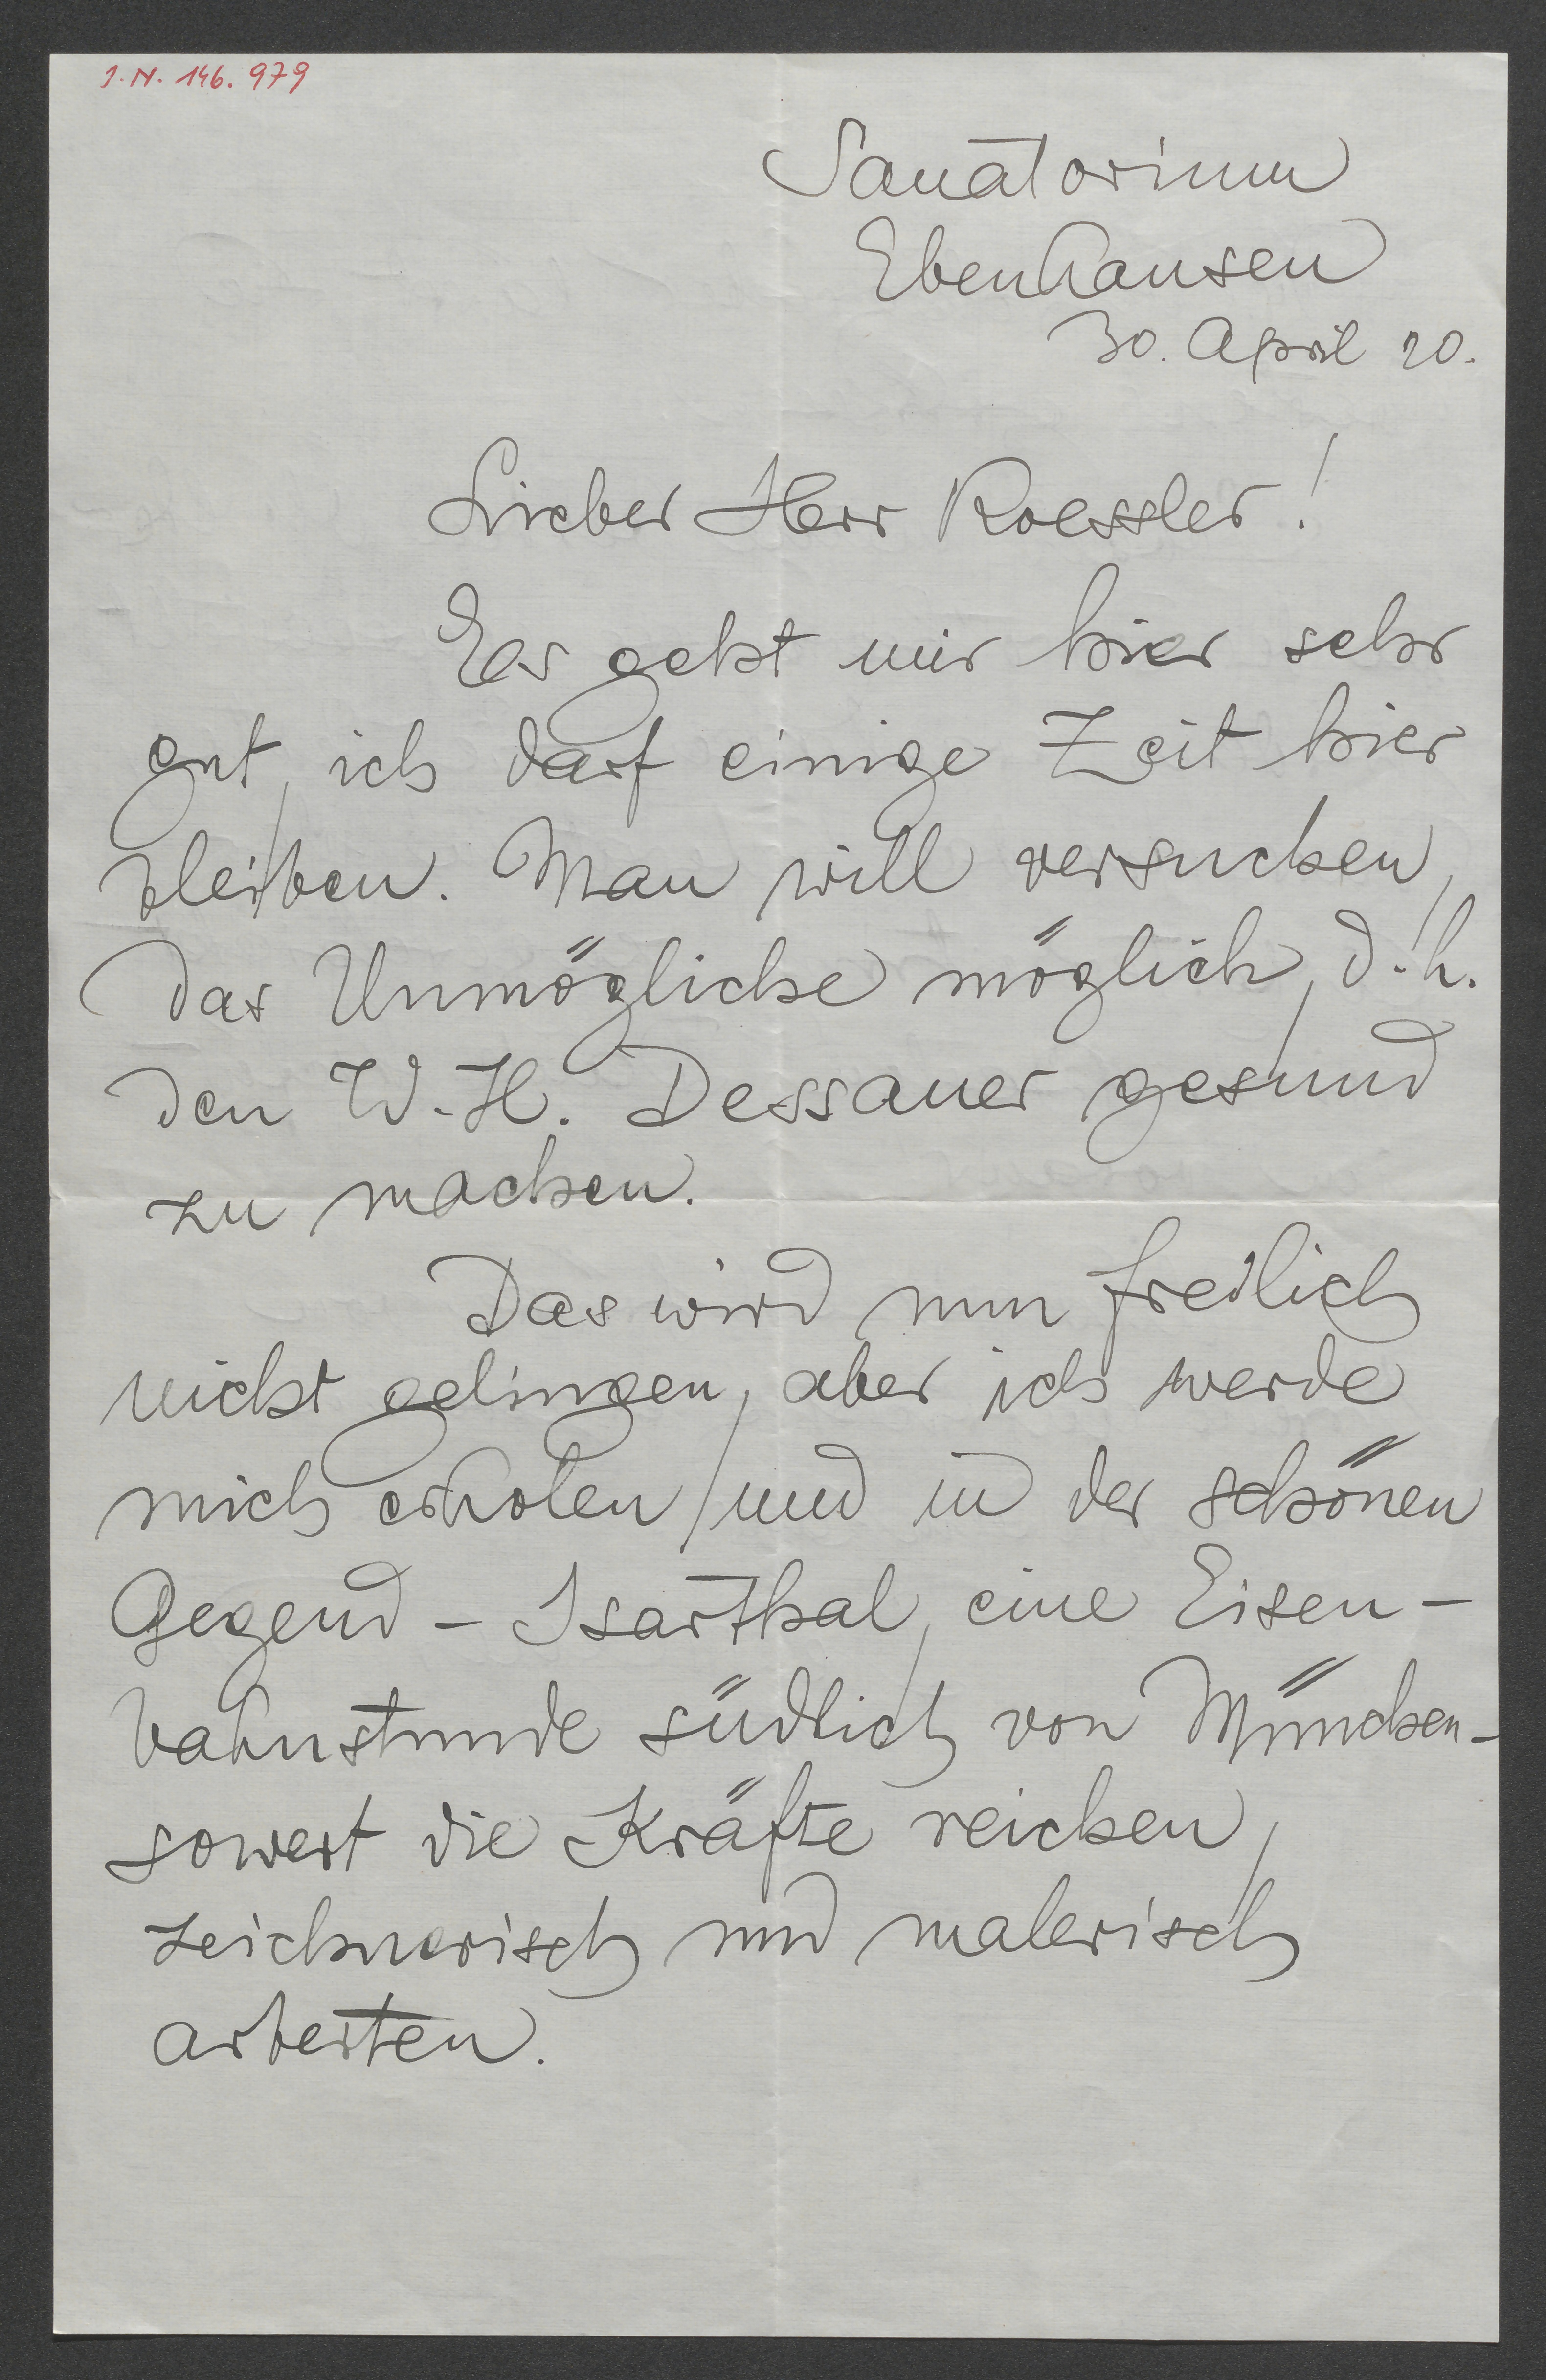 I.N. 146.979
Sanatorium
Ebenhausen
30. April 20.
Lieber Herr Roessler!
Es geht mir hier sehr
gut, ich darf einige Zeit hier
bleiben. Man will versuchen,
das Unmögliche möglich, d.h.
den W.H. Dessauer gesund
zu machen.
Das wird nun freilich
nicht gelingen, aber ich werde
mich erholen und in der schönen
Gegend - Isarthal, eine Eisen-
bahnstunde südlich von München -
soweit die Kräfte reichen,
zeichnerisch und malerisch
arbeiten.